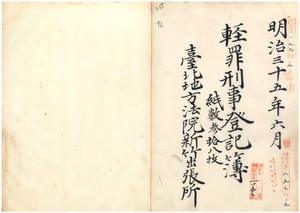 明治三十五年六月
輕罪刑事登記簿
紙數參拾八枚
臺北地方法院新竹出張所